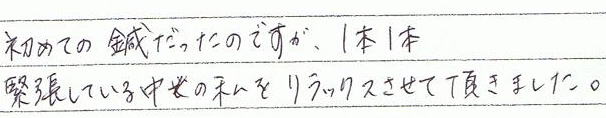 初めての鍼だったのですが、1本1本
緊張している中の私をリラックスさせて頂きました。